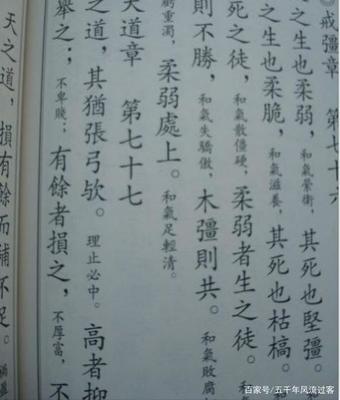 戒彊章　第七十六
之生也柔弱，和氣縈衛，其死也堅彊。
之生也柔脆，和氣滋養，其死也枯槁。
死之徒，和氣散僵硬，柔弱者生之徒。和氣
則不勝，和氣失驕傲，木彊則共。和氣敗腐
虧重濁，柔弱處上。和氣足輕清。
天道章　第七十七
之道，其猶張弓欤。理止必中。高者抑
舉之；不卑賤；有餘者損之，不厚富，不
天之道，損有餘而補不足。
百家号/五千年风流过客